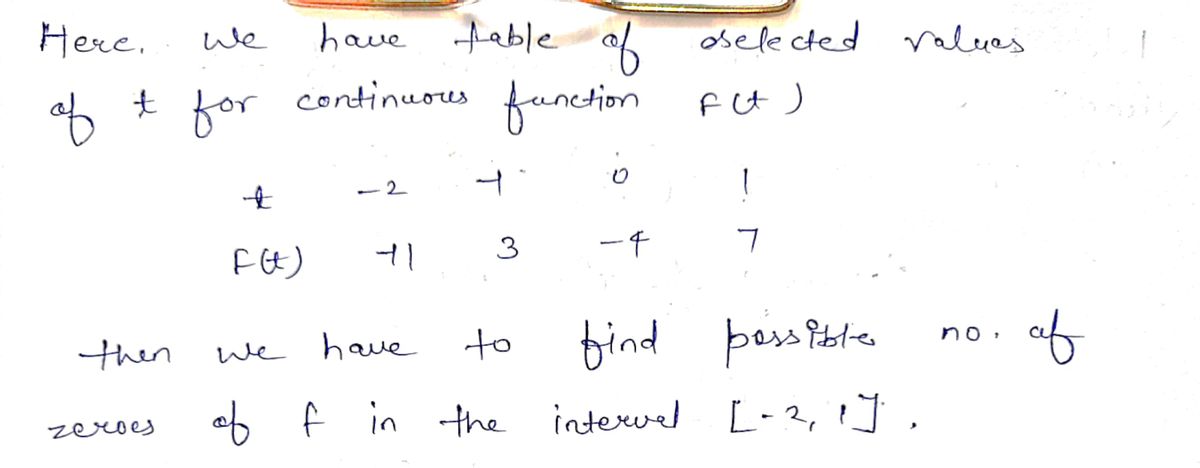 Here, we have table of selected values
of t for continuous function F(t)
t -2 -1 0 1
F(t) -11 3 -4 7
then we have to find possible no. of
zeroes of f in the interval [-2, 1].